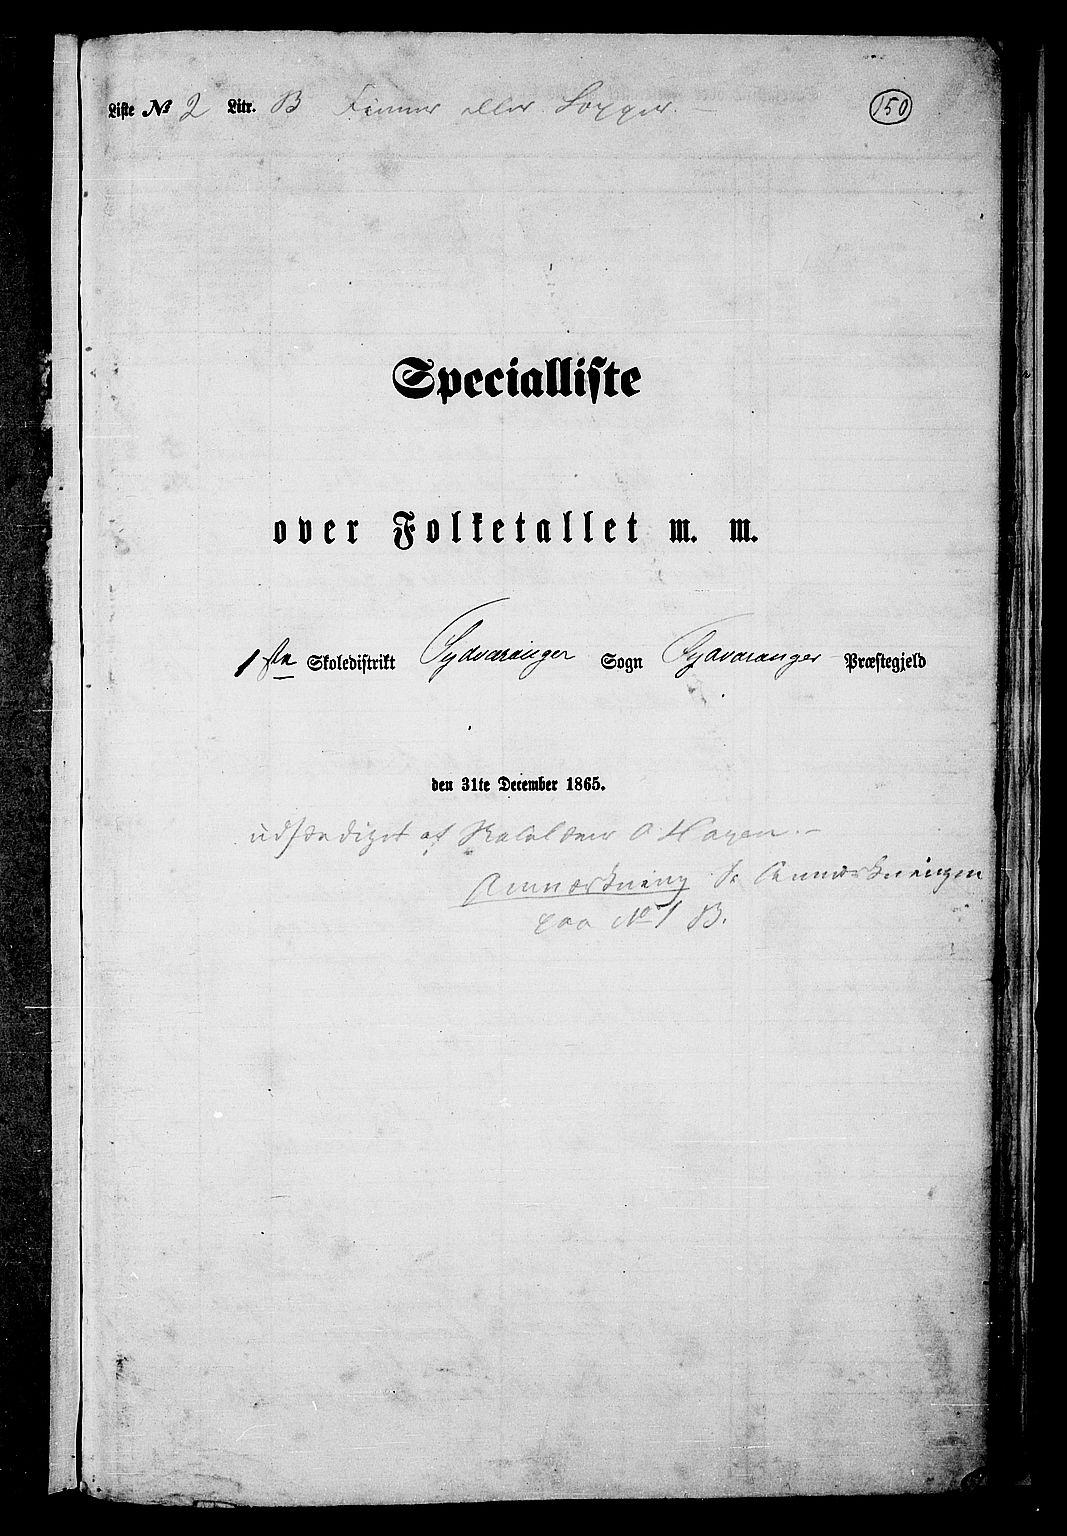 Liste № 2 Litr. B Finner eller Lapper.
150
Specialliste
over Folketallet m. m.
1ste Skoledistrikt Sydvaranger Sogn Sydvaranger Præstegjeld
den 31te December 1865.
udfærdiget af Skolelærer O Hagen.
Anmærkning Se Anmærkningen
paa No 1 B.